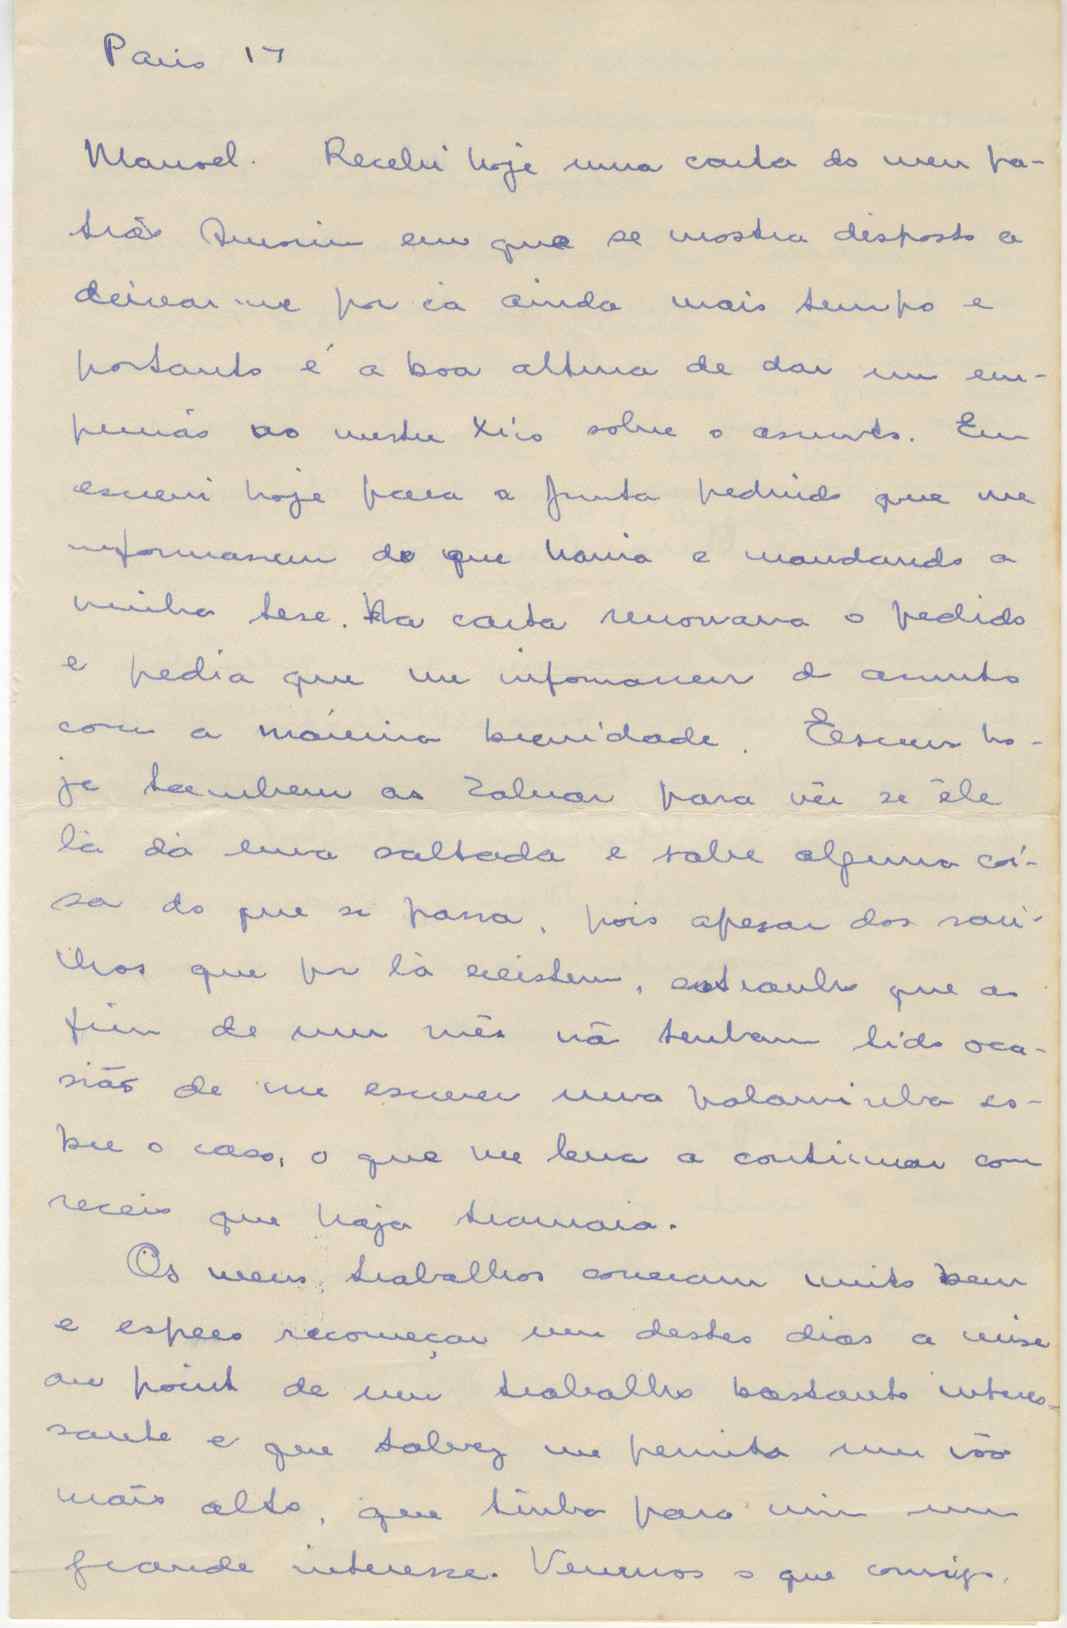 Paris 17
Manoel. Recebi hoje uma carta do meu pa-
trão Amorim em que se mostra disposto a
deixar-me por cá ainda mais tempo e
portanto é a boa altura de dar um em-
purrão ao mestre Xico sobre o assunto. Eu
escrevi hoje para a Junta pedindo que me
informassem do que havia e mandando a
minha tese. Na carta renovava o pedido
e pedia que me informassem do assunto
com a máxima brevidade. Escrevo ho-
je tambem ao Zaluar para vêr se êle
lá dá uma saltada e sabe alguma coi-
sa do que se passa, pois apesar dos sari-
lhos que por lá existem, extranho que ao
fim de um mês não tenham tido oca-
sião de me escrever uma palavrinha so-
bre o caso, o que me leva a continuar com
receio que haja tramoia.
Os meus trabalhos correram muito bem
e espero recomeçar um destes dias a mise
au point de um trabalho bastante interes-
sante e que talvez me permita um vôo
mais alto, que tinha para mim um
grande interesse. Veremos o que consigo.